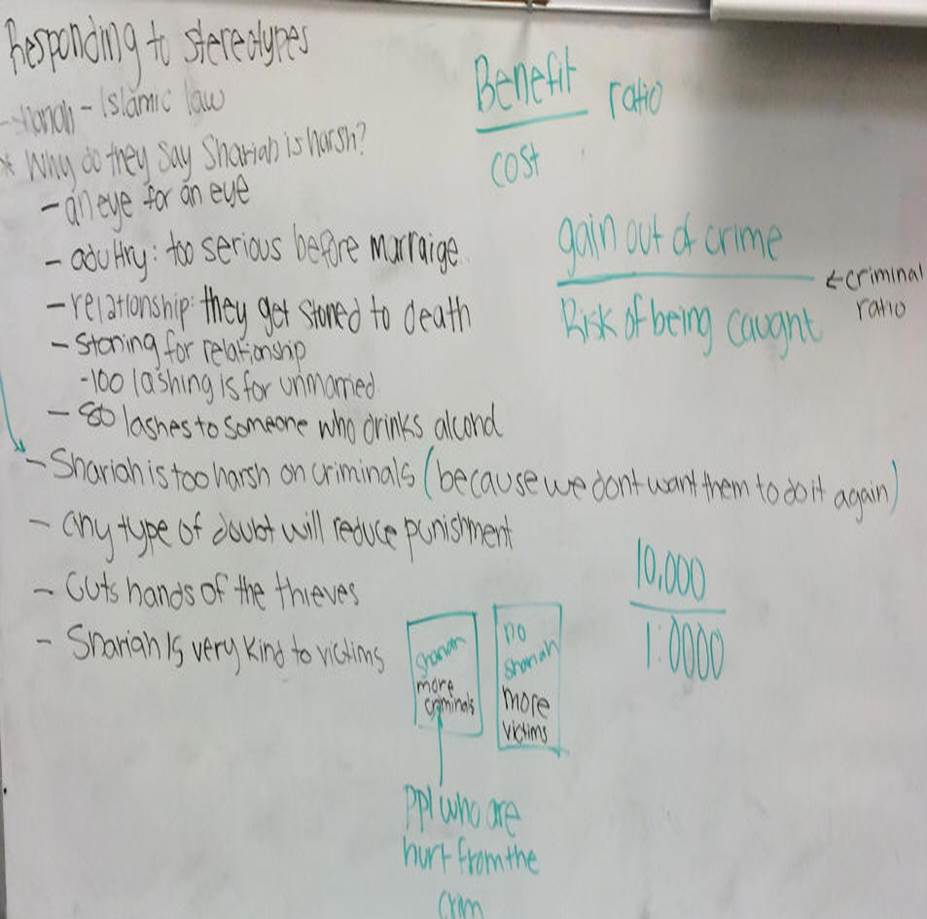 Responding to stereotypes
- shariah - Islamic law
* Why do they say Shariah is harsh?
- an eye for an eye
- adultry: too serious before marraige
- relationship: they get stoned to death
- Stoning for relationship
-100 lashing is for unmarried
- 80 lashes to someone who drinks alcohol
- Shariah is too harsh on criminals (because we dont want them to do it again)
- any type of doubt will reduce punishment
- cuts hands of the thieves
- Shariah is very kind to victims
Benefit ratio
cost
gain out of crime
Risk of being caught
← criminal
ratio
10,000
1:0000
Shariah
more
criminals
no
shariah
more
victims
ppl who are
hurt from the
crim